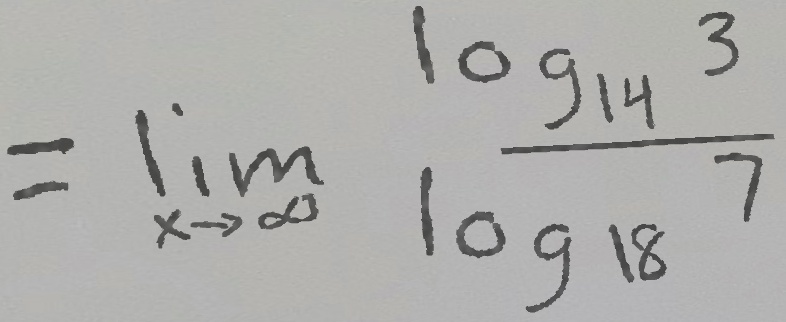 = lim x→∞ log₁₄ 3 / log₁₈ 7